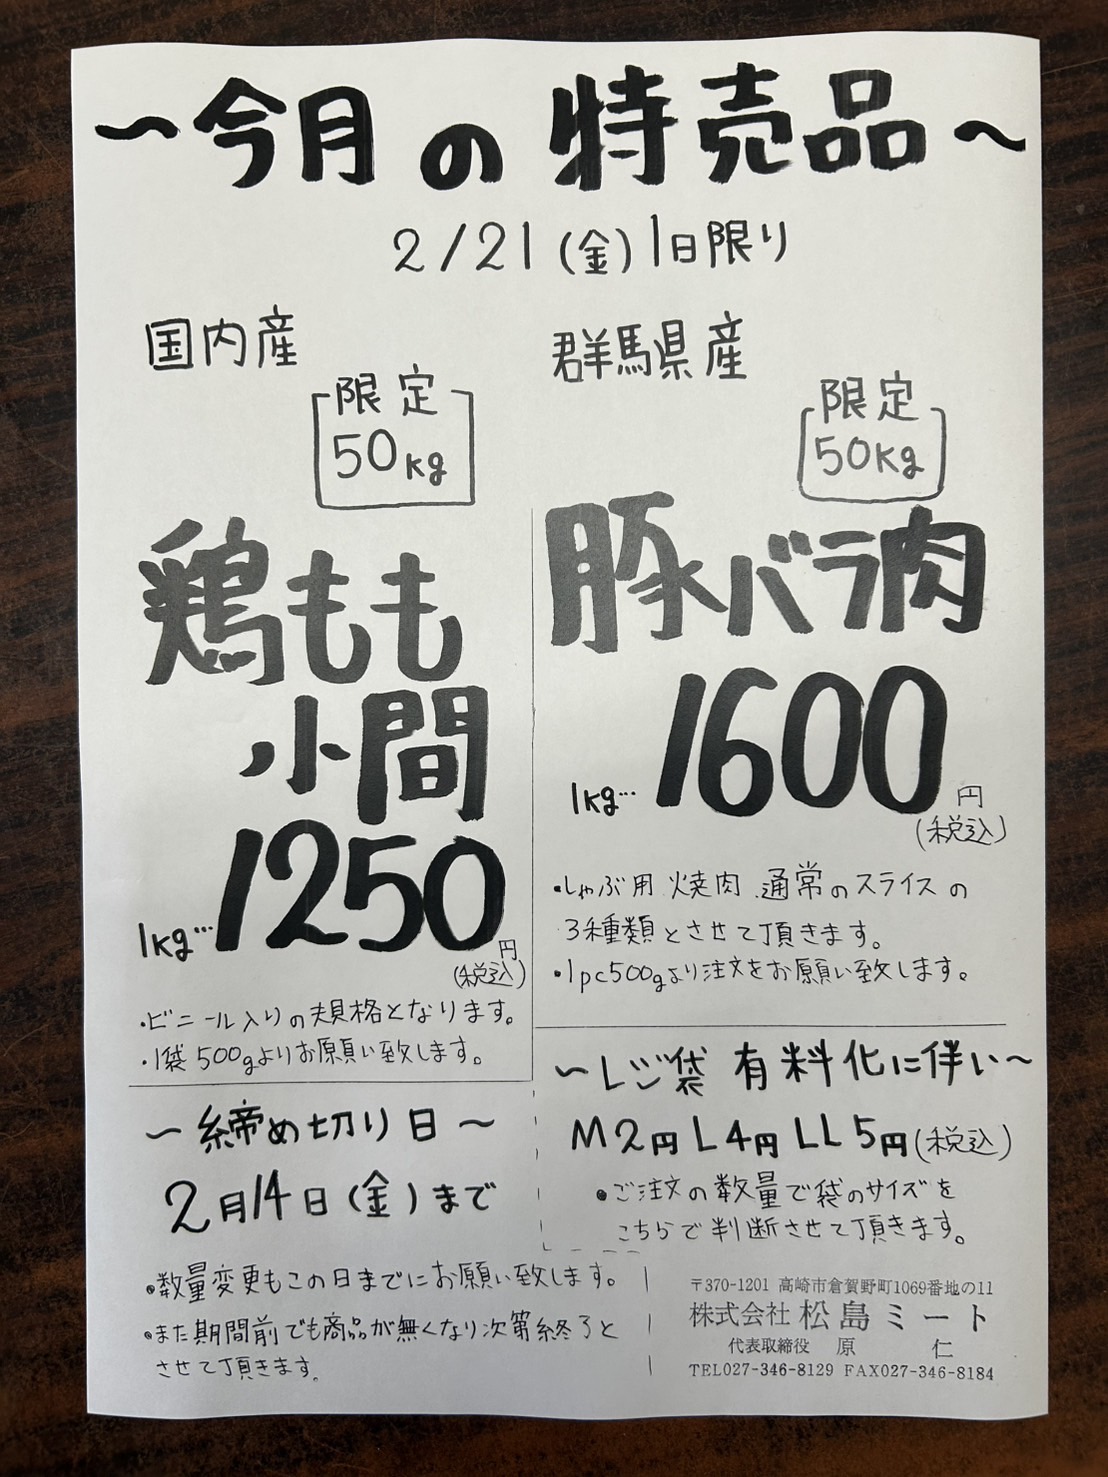 ～今月の特売品～
2/21(金)1日限り
国内産
限定
50kg
鶏もも
小間
1kg…1250円
(税込)
・ビニール入りの規格となります。
・1袋500gよりお願い致します。
群馬県産
限定
50kg
豚バラ肉
1kg…1600円
(税込)
・しゃぶ用.焼肉.通常のスライスの
3種類とさせて頂きます。
・1pc500gより注文をお願い致します。
～締め切り日～
2月14日(金)まで
・数量変更もこの日までにお願い致します。
・また期間前でも商品が無くなり次第終了と
させて頂きます。
～レジ袋有料化に伴い～
M2円 L4円 LL5円(税込)
・ご注文の数量で袋のサイズを
こちらで判断させて頂きます。
〒370-1201 高崎市倉賀野町1069番地の11
株式会社 松島ミート
代表取締役 原 仁
TEL027-346-8129 FAX027-346-8184